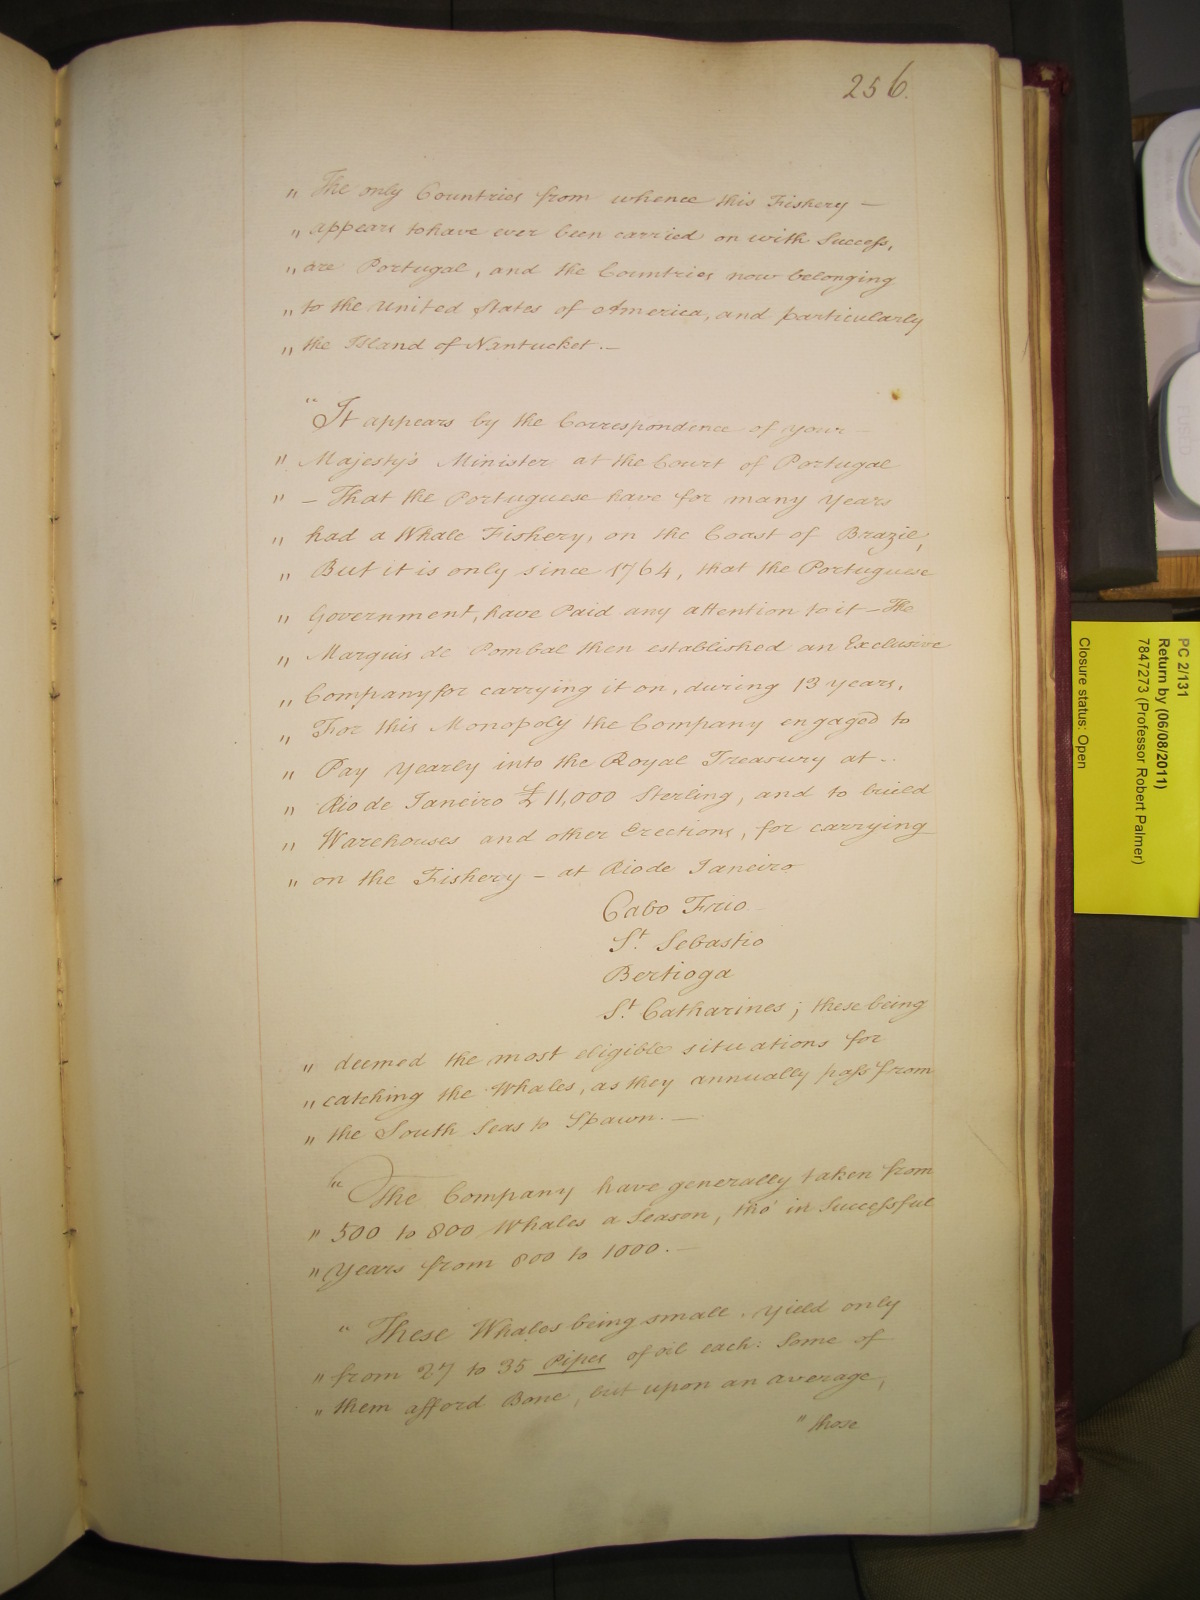 256.
" The only Countries from whence this Fishery —
" appears to have ever been carried on with Success,
" are Portugal, and the Countries now belonging
" to the United States of America, and particularly
" the Island of Nantucket. —
" It appears by the Correspondence of your —
" Majesty's Minister at the Court of Portugal
" — That the Portuguese have for many Years
" had a Whale Fishery, on the Coast of Brazil,
" But it is only since 1764, that the Portuguese
" Government, have Paid any attention to it — The
" Marquis de Pombal then established an Exclusive
" Company for carrying it on, during 13 years.
" For this Monopoly the Company engaged to
" Pay Yearly into the Royal Treasury at ..
" Rio de Janeiro £11,000 Sterling, and to build
" Warehouses and other Erections, for carrying
" on the Fishery — at Rio de Janeiro
Cabo Frio
St. Sebastio
Bertioga
St. Catharines; these being
" deemed the most eligible situations for
" catching the Whales, as they annually pass from
" the South Seas to Spawn. —
" The Company have generally taken from
" 500 to 800 Whales a Season, tho' in Successful
" Years from 800 to 1000. —
" These Whales being small. yield only
" from 27 to 35 Pipes of oil each: Some of
" them afford Bone, but upon an average,
" those
PC 2/131
Return by (06/08/2011)
7847273 (Professor Robert Palmer)
Closure status: Open